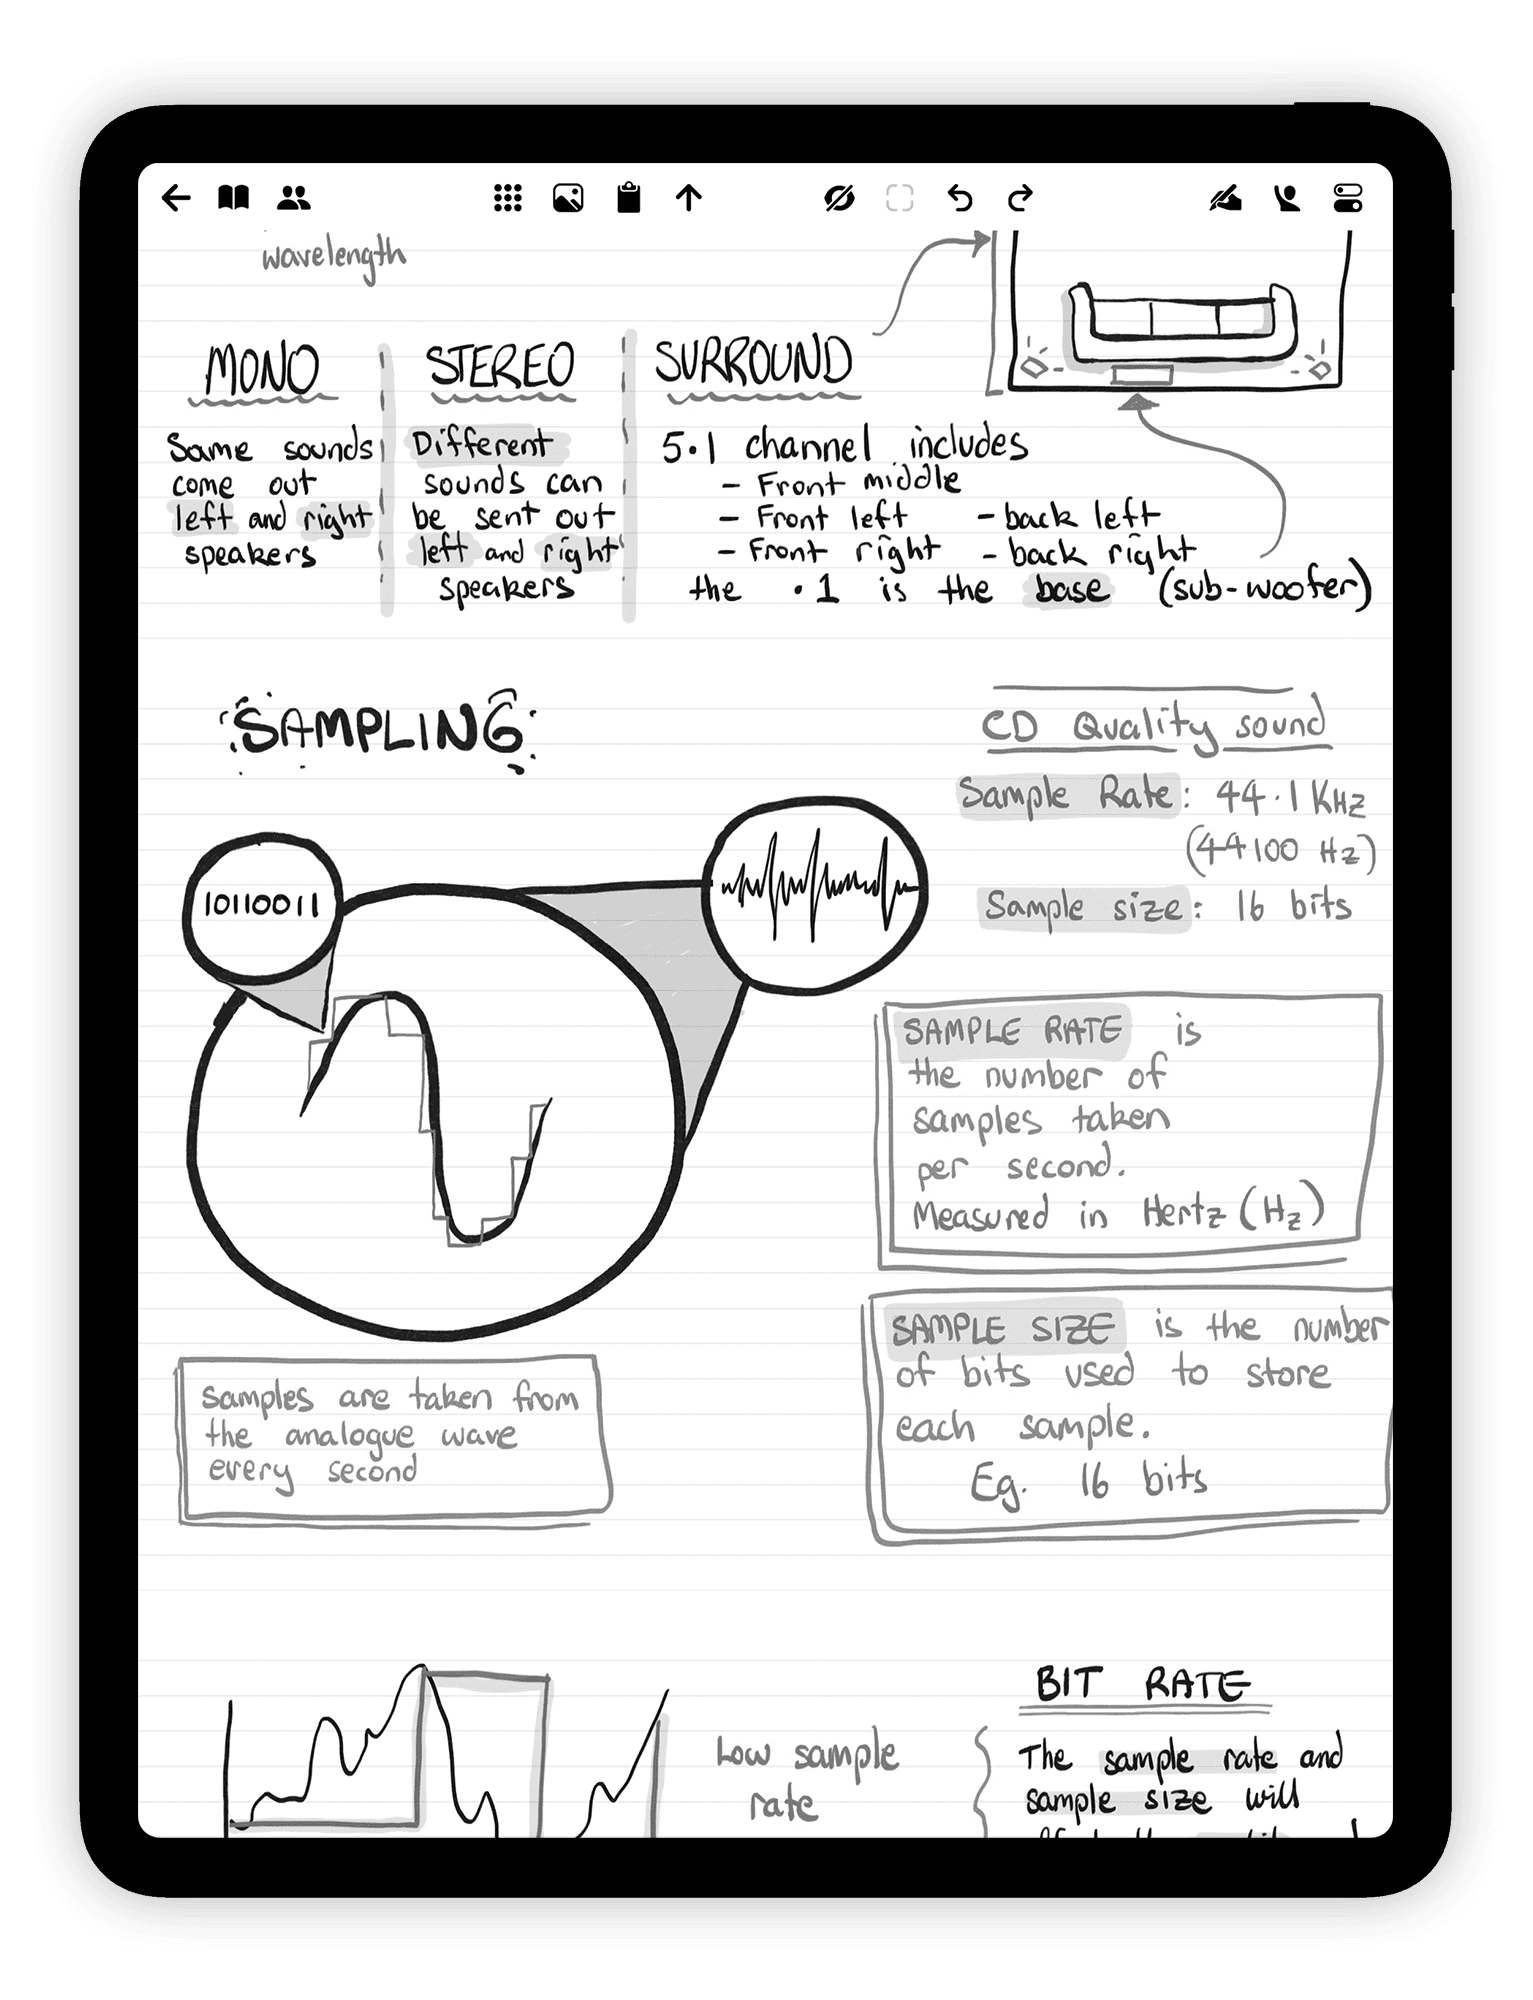 wavelength
MONO
Same sounds
come out
left and right
speakers
STEREO
Different
sounds can
be sent out
left and right
speakers
SURROUND
5.1 channel includes
- Front middle
- Front left - back left
- Front right - back right
the .1 is the base (sub-woofer)
SAMPLING
10110011
CD Quality sound
Sample Rate: 44.1 KHz
(44100 Hz)
Sample size: 16 bits
SAMPLE RATE is
the number of
samples taken
per second.
Measured in Hertz (Hz)
SAMPLE SIZE is the number
of bits used to store
each sample.
Eg. 16 bits
Samples are taken from
the analogue wave
every second
Low sample
rate
BIT RATE
The sample rate and
sample size will